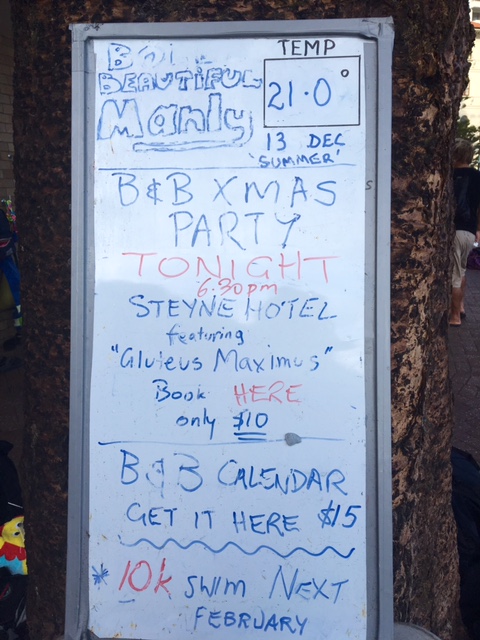 BEAUTIFUL
Manly
TEMP
21.0°
13 DEC
'SUMMER'
B&B XMAS
PARTY
TONIGHT
6.30pm
STEYNE HOTEL
featuring
"Gluteus Maximus"
Book HERE
only $10
B&B CALENDAR
GET IT HERE $15
* 10k SWIM NEXT
FEBRUARY